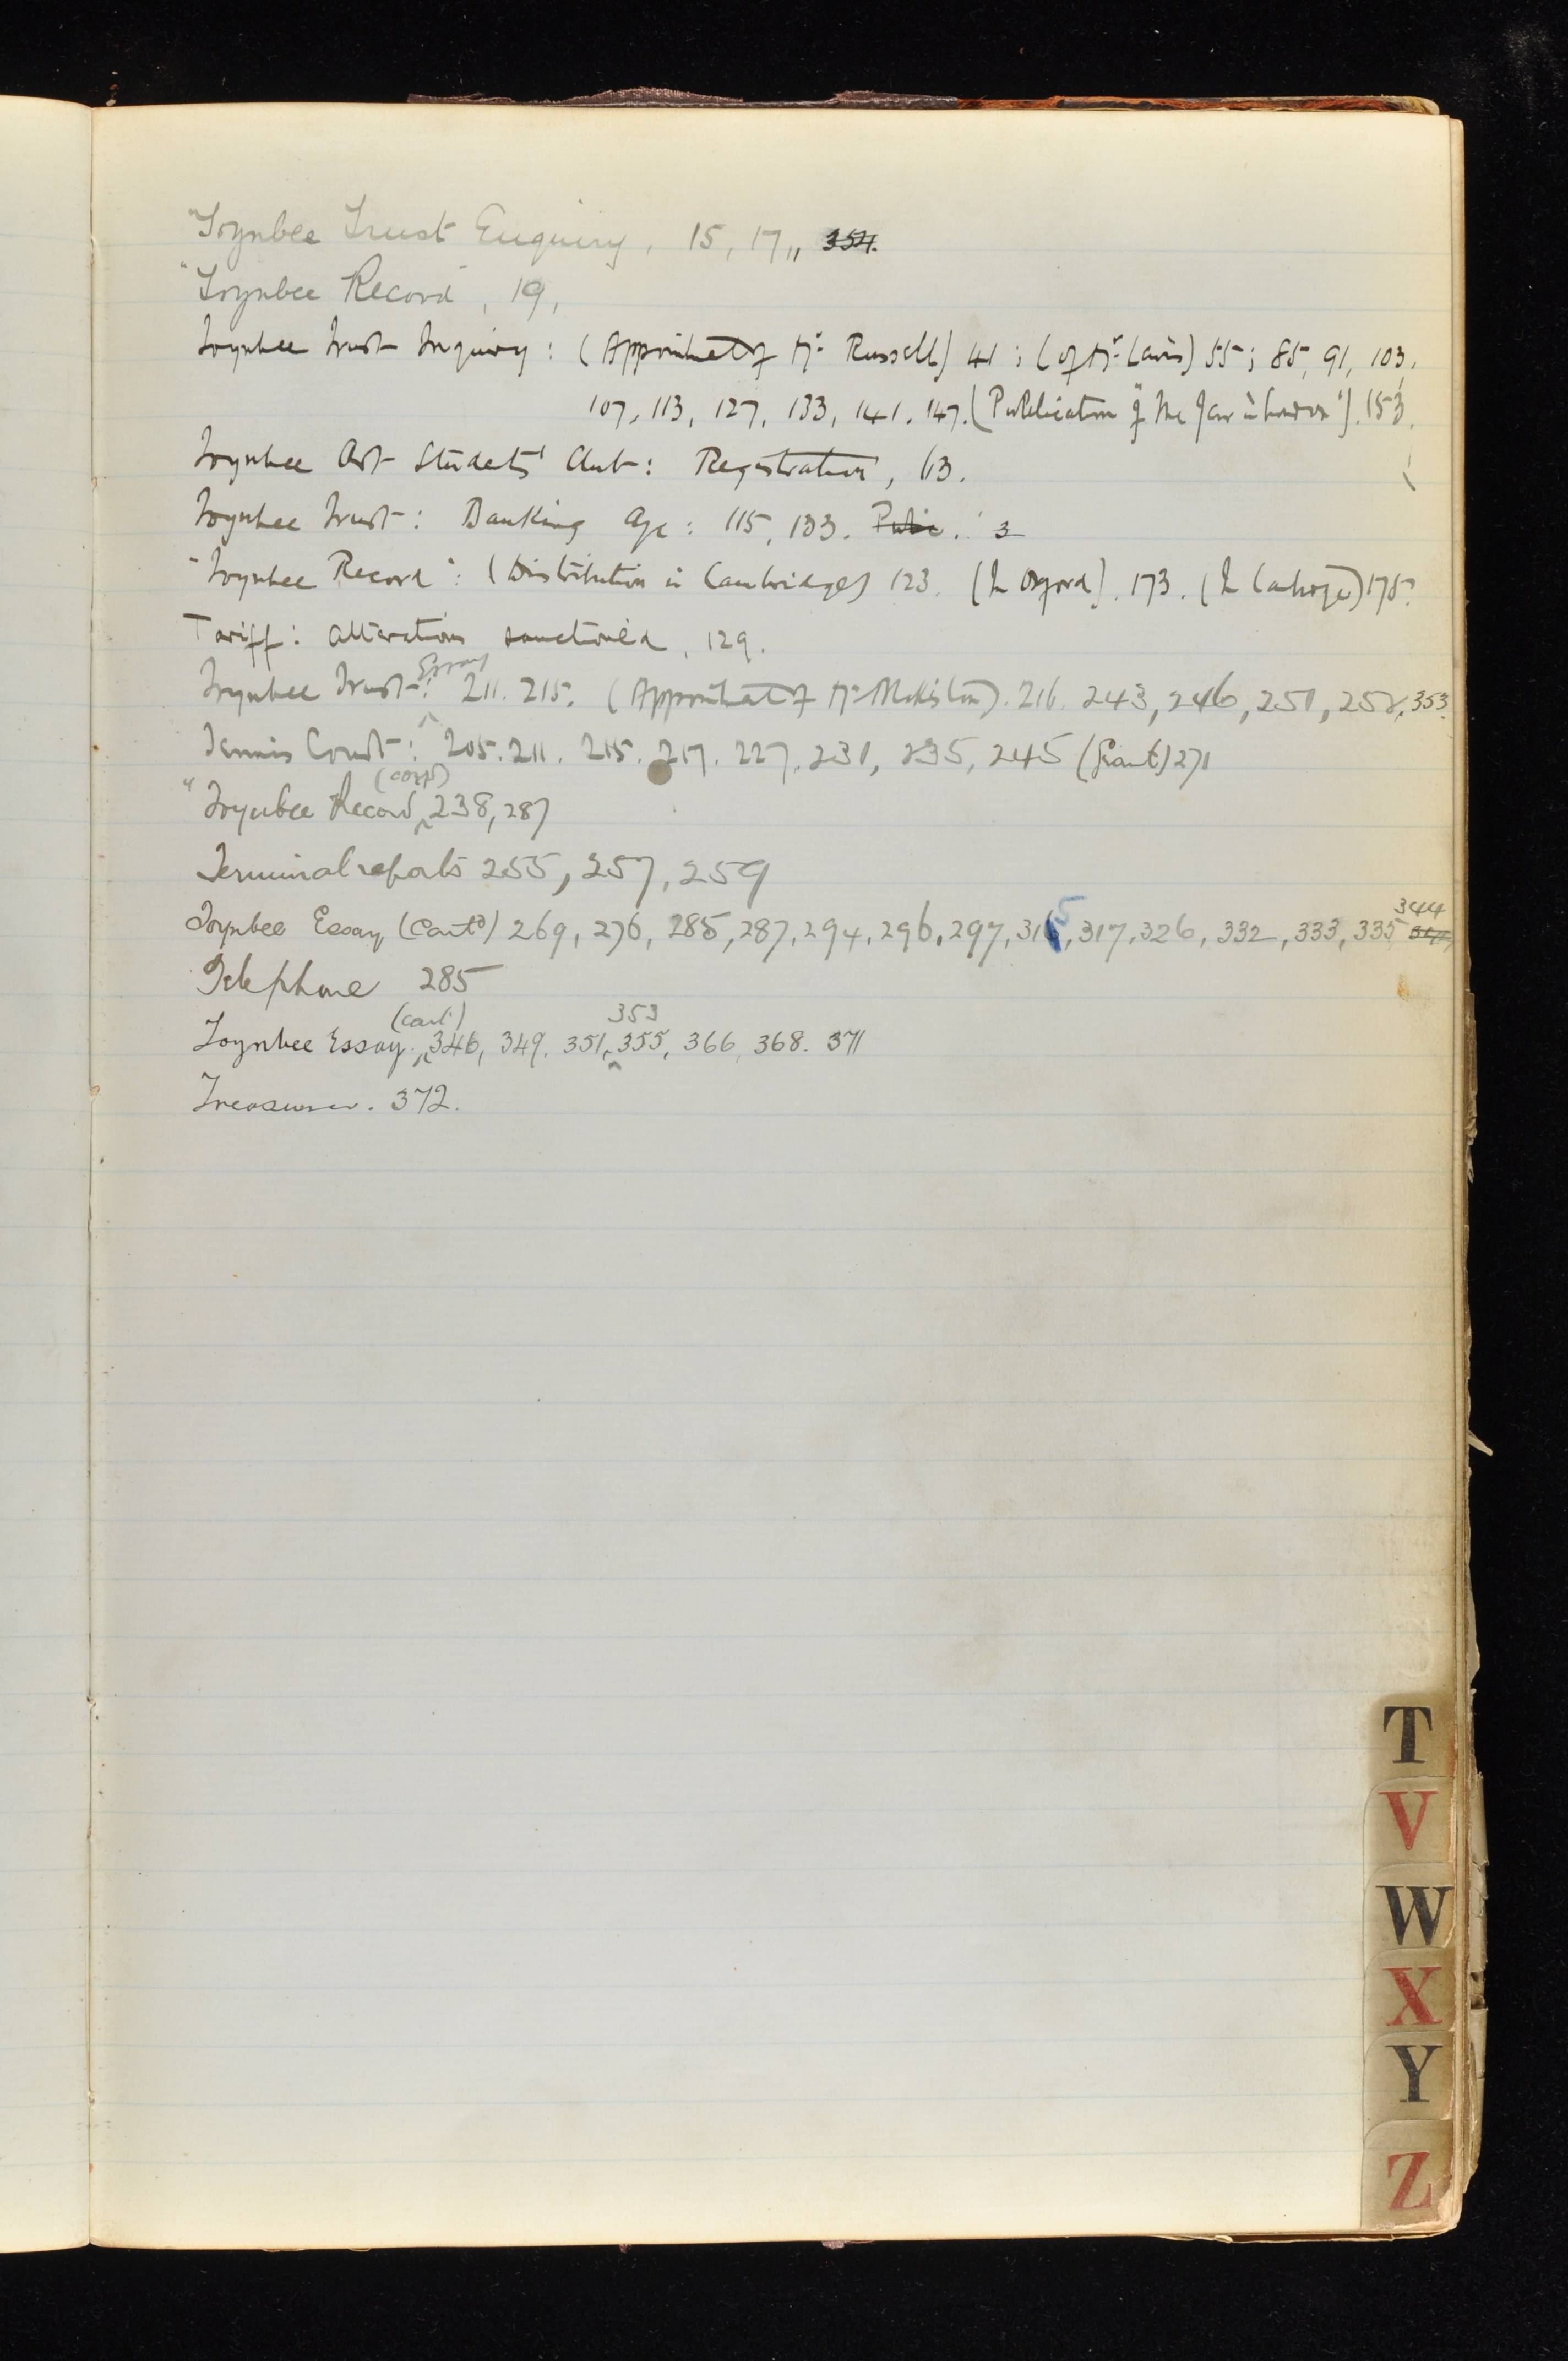 "Toynbee Trust Enquiry, 15, 17,, 354.
"Toynbee Record", 19,
Toynbee Trust Inquiry: (Appointmet of Mr. Russell) 41; (of Mr. Lewis) 55; 85, 91, 103,
107, 113, 127, 133, 141. 147. (Publication of "The Jew in London"). 153,
Toynbee Art Students' Club: Registration, 63.
Toynbee Trust: Banking A/c: 115, 133. Public.
"Toynbee Record": (Distribution in Cambridge) 123. (In Oxford). 173. (In Cambridge) 175.
Tariff: Alterations sanctioned, 129.
Toynbee Trust: Essay 211. 215. (Appointmet of Mr. ) 216. 243, 246, 251, 252, 353.
Tennis Court: 205. 211. 215. 217. 227. 231, 235, 245 (Grant) 271
"Toynbee Record (copy) 238, 287
Terminal reports 255, 257, 259
Toynbee Essay (Contd) 269, 276, 285, 287, 294, 296, 297, 315, 317, 326, 332, 333, 335 344
Telephone 285
Toynbee Essay. (cont.) 346, 349. 351, 353 355, 366, 368. 371
Treasurer. 372.
T
V
W
X
Y
Z